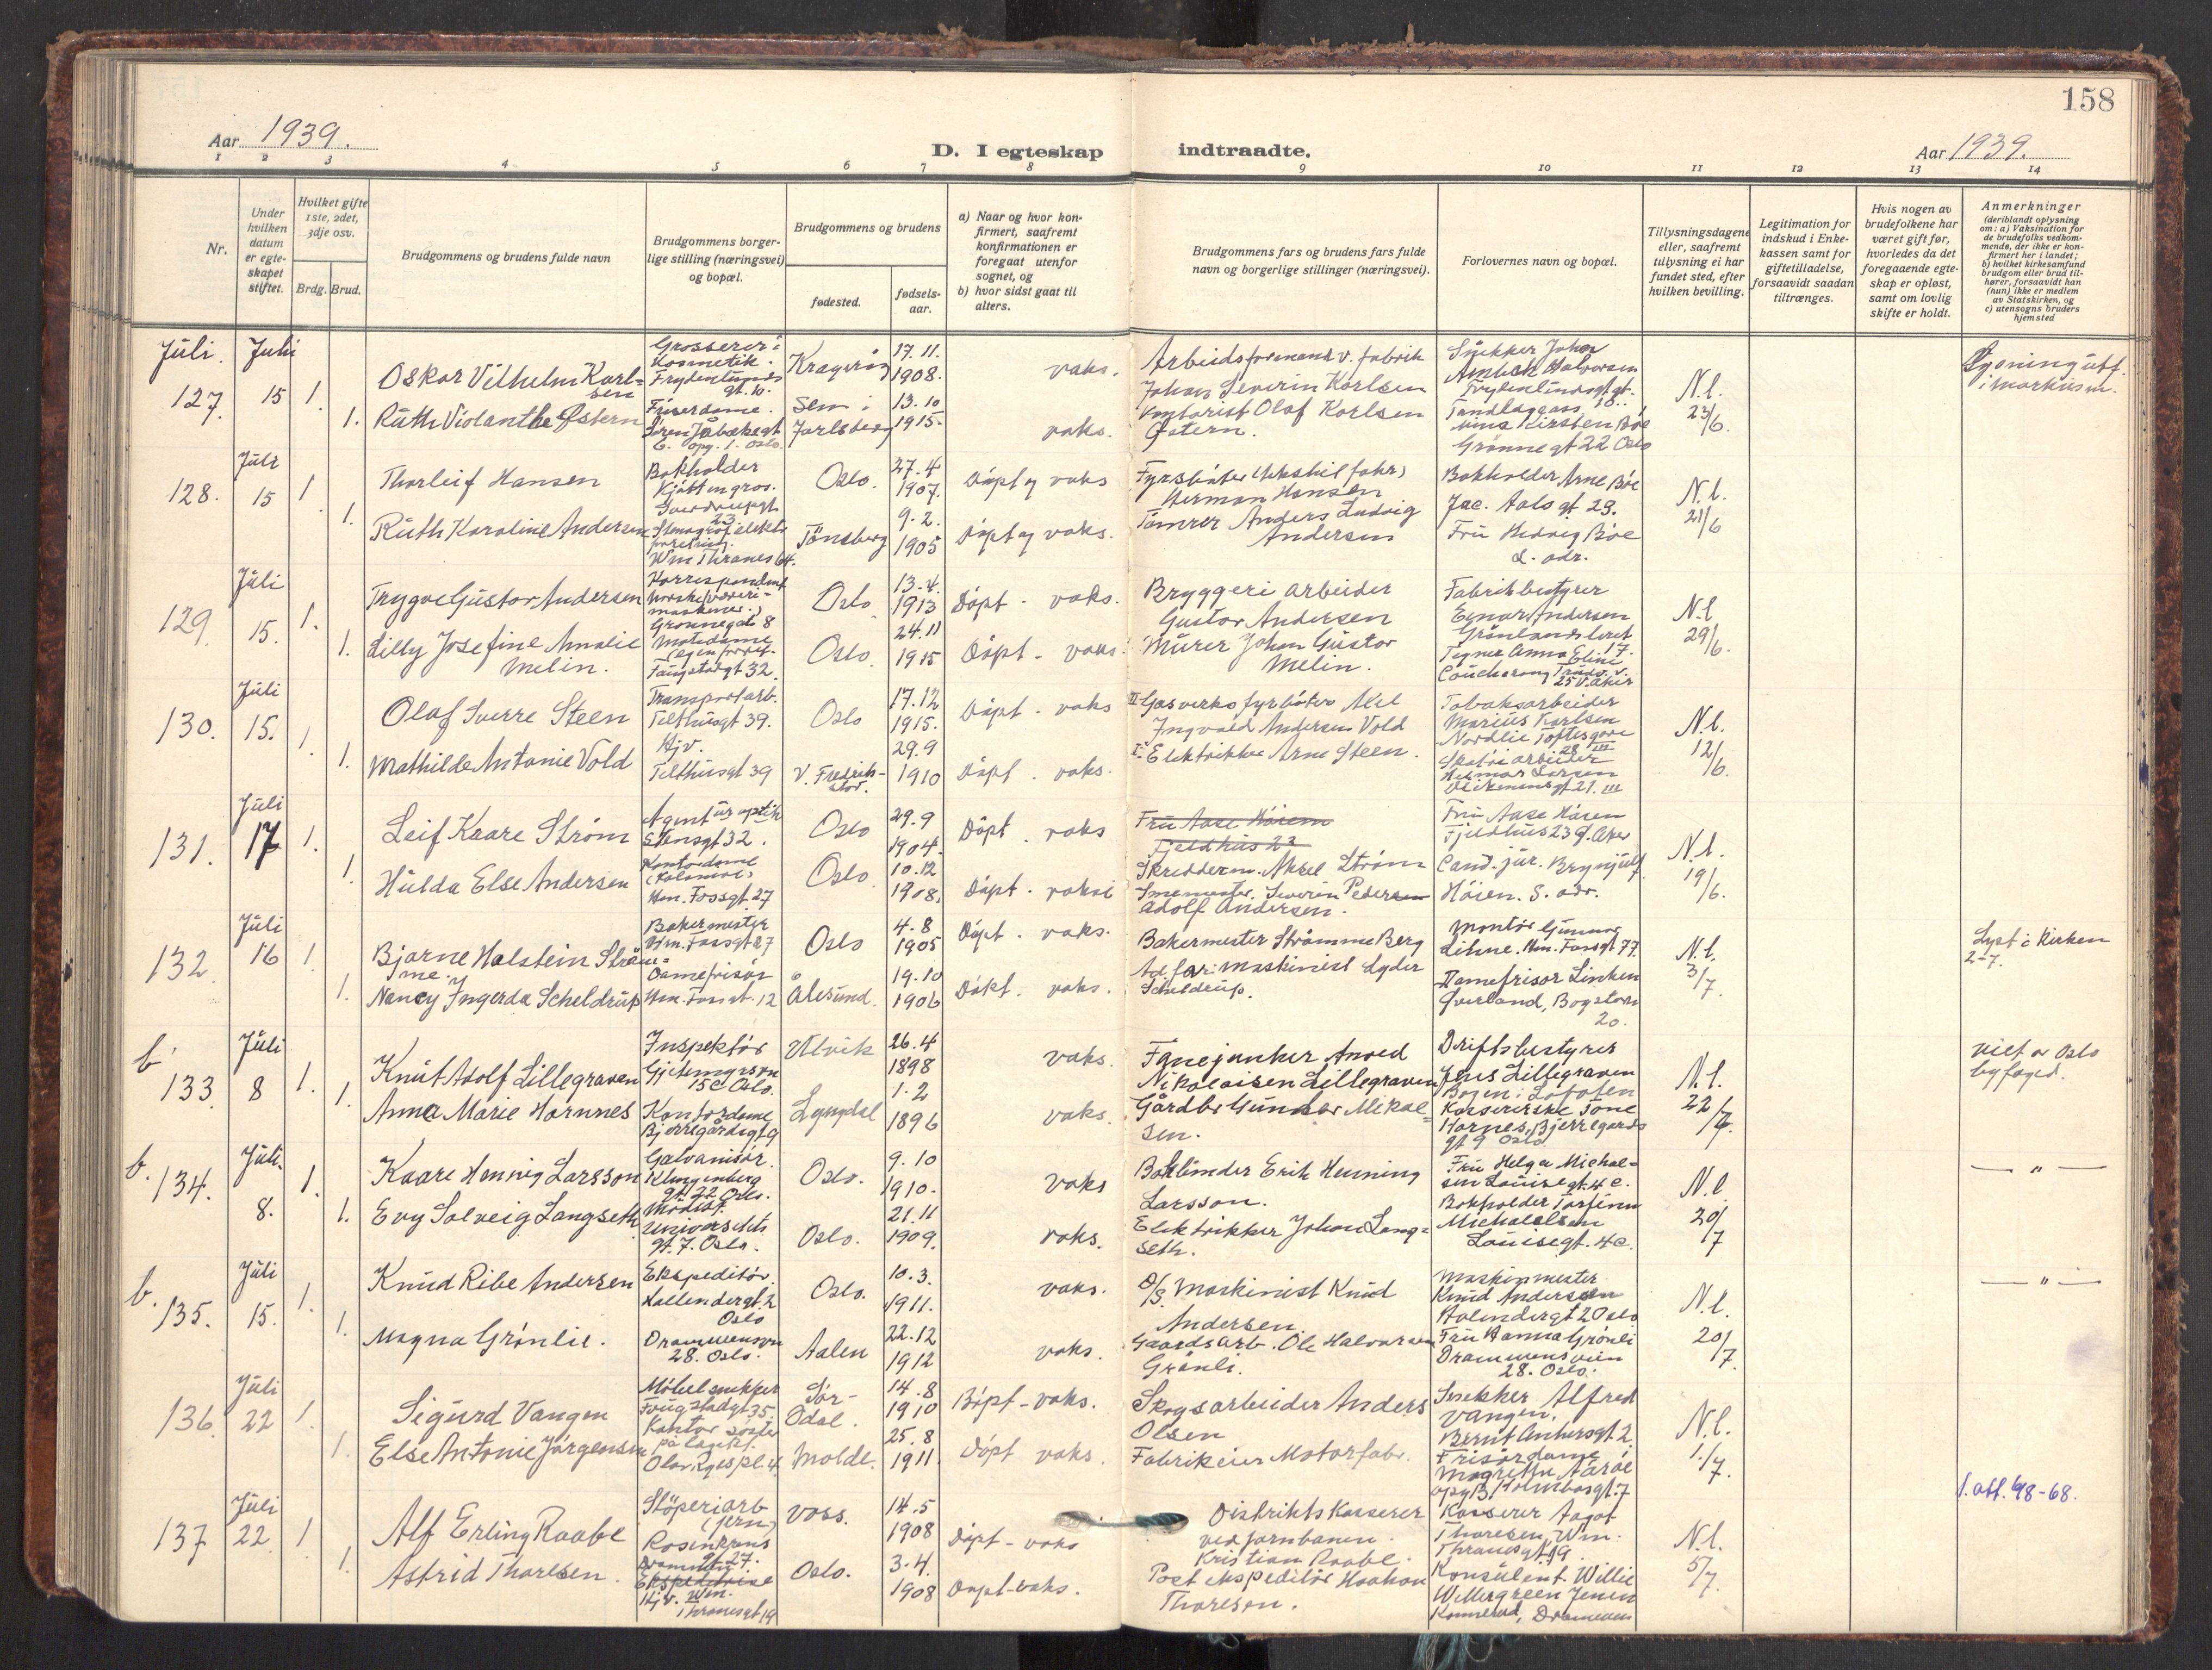 158
Aar 1939.
D. I egteskap indtraadte.
Aar 1939.
1 2 3 4 5 6 7 8 9 10 11 12 13 14
Nr.
Under hvilken datum er egteskapet stiftet.
Hvilket gifte 1ste, 2det, 3dje osv.
Brdg. Brud.
Brudgommens og brudens fulde navn
Brudgommens borgerlige stilling (næringsvei) og bopæl.
Brudgommens og brudens
fødested.
fødselsaar.
a) Naar og hvor konfirmert, saafremt konfirmationen er foregaat utenfor sognet, og
b) hvor sidst gaat til alters.
Brudgommens fars og brudens fars fulde navn og borgerlige stillinger (næringsvei).
Forlovernes navn og bopæl.
Tillysningsdagene eller, saafremt tillysning ei har fundet sted, efter hvilken bevilling.
Legitimation for indskud i Enkekassen samt for giftetilladelse, forsaavidt saadan tiltrænges.
Hvis nogen av brudefolkene har været gift før, hvorledes da det foregaaende egteskap er opløst, samt om lovlig skifte er holdt.
Anmerkninger
(deriblandt oplysning om: a) Vaksination for de brudefolks vedkommende, der ikke er konfirmert her i landet; b) hvilket kirkesamfund brudgom eller brud tilhører, forsaavidt han (hun) ikke er medlem av Statskirken, og c) utensogns bruders hjemsted
Juli. 127. Juli 15 1.
Oskar Vilhelm Karlsen
Grosserer i Kosmetik. Frydenlundsgt. 10.
Kragerø 17.11. 1908. vaks.
Arbeidsformand v. fabrik Johan Severin Karlsen
Snekker Johan Halvorsen
N.l. 23/6.
1. Ruth Violanthe Østern
Friserdame.
Sem i Jarlsberg 13.10 1915. vaks.
Kontorist Olaf Karlsen Østern.
Kirsten Bøe Grønnegt 22 Oslo
128. Juli 15 1
Thorleif Hansen
Bokholder Kjøtt engros. Sverdrupsgt 23
Oslo. 27.4 1907. Døpt og vaks
Fyrbøter
Herman Hansen
Bokholder Arne Bøe
Jac. Aalsgt 29.
N.l. 21/6
1. Ruth Karoline Andersen
Wm Thranes 64.
Tönsberg 9.2. 1905 Døpt og vaks.
Tömrer Anders Ludvig Andersen
Fru Hedvig Bøe
129. Juli 15. 1.
Trygve Gustav Andersen
Korrespondent
Grønnegate 8
Oslo 13.4. 1913 Døpt - vaks.
Bryggeri arbeider Gustav Andersen
Fabrikbestyrer Einar Andersen Grønlandsleret 17.
N.l 29/6.
1. Lilly Josefine Amalie Melin.
Motedame
Oslo. 24.11 1915 Døpt - vaks.
Murer Johan Gustav Melin.
Tegner Anna Eline
130. Juli 15. 1.
Olaf Sverre Steen
Transportarb. Telthusgt 39.
Oslo 17.12 1915. Døpt - vaks
II Gasverksfyrbøter Axel Ingvald Andersen Vold
Tobaksarbeider Marius Karlsen Nordlie Toftesgate 28 III
N.l. 12/6.
1. Mathilde Antonie Vold
Hjv. Telthusgt 39
V. Fredrikstad. 29.9 1910 Døpt. vaks.
I. Elektriker Arne Steen.
Skotøiarbeider Hilmar Larsen
131. Juli 17 1.
Leif Kaare Strøm
Agentur optik Stensgt 32.
Oslo 29.9 1904. Døpt. vaks
Fru Aase Höiem Fjeldhus 23
Skredderm. Aksel Strøm
Fru Aase Höien Fjeldhus 23 Ø. Aker
N.l. 19/6.
1. Hulda Else Andersen
Kontordame (Kolonial) Hm. Fossgt. 27
Oslo 10.12 1908. Døpt. vaksi
Severin Pedersen Adolf Andersen.
Cand. jur. Brynjulf Höien. S. adr.
132. Juli 16 1
Bjarne Halstein Strømme.
Bakermester Wm. Fossgt 27
Oslo 4.8 1905 Døpt. vaks.
Bakermester Strømme Berg
Montør Gunnar Lihne. Hm. Fossgt 77.
N.l. 3/7.
Lyst i kirken 2-7.
1. Nancy Ingerda Scheldrup
Damefrisör Hm. Fossgt. 12
Ålesund. 19.10 1906 Døpt. vaks.
Ad. far: Maskinist Lyder Scheldrup.
Damefrisør Linken Øverland, Bogstadv 20.
b. 133. Juli 8 1.
Knut Adolf Lillegraven
Inspektör Gjetemyrsvn 15c Oslo.
Ulvik 26.4 1898 vaks.
Fanejunker Anved Nikolaisen Lillegraven
Driftsbestyrer Jens Lillegraven Bogen: Lofoten
N.l. 22/7.
viet av Oslo byfoged.
1. Anna Marie Hornnes
Kontordame Bjerregårdsgt. 9
Lyngdal 1.2 1896 vaks.
Gårdbr. Gunder Mikalsen.
Kassererske Tone Hornes, Bjerregaardsgt 9 Oslo
b. 134. Juli. 8. 1.
Kaare Henning Larsson
Galvanisør. Klingenberg gt. 22 Oslo.
Oslo. 9.10 1910. vaks
Bokbinder Erik Henning Larsson.
Fru Helga Michalsen Louisegt. 4c.
N.l. 20/7
— " —
1. Evy Solveig Langseth
Modist. Universitetsgt. 7. Oslo.
Oslo. 21.11 1909. vaks.
Elektrikker Johan Langseth.
Bokholder Torfinn Michalsen Louisegt. 4c.
b. 135. Juli 15. 1.
Knud Ribe Andersen
Ekspeditör. Hallendergt. 2 Oslo
Oslo. 10.3. 1911. vaks.
D/S. Maskinist Knud Andersen.
Maskinmester Knud Andersen Holendergt 2 Oslo
N.l. 20/7.
— " —
1. Magna Grönlie.
Drammensvn 28. Oslo.
Aalen 22.12 1912 vaks.
Gaardsarb. Ole Halvorsen Grönli.
Fru Hanna Grönli Drammensveien 28. Oslo.
136. Juli 22 1.
Sigurd Vangen
Møbelsnekker Fougstadgt 35
Sør-Odal. 14.8 1910 Døpt - vaks.
Skogsarbeider Anders Olsen
Snekker Alfred Vangen. Bernt Ankersgt. 2.
N.l. 1./7.
1. Else Antonie Jørgensen
Olav Ryes pl. 4.
Molde. 25.8 1911. Døpt vaks.
Fabrikeier Motorfabr.
Frisørdame Magrethe Aarøe
137 Juli 22 1
Alf Erling Raabe
Stöperiarb (jern) Rosenkransgt 27.
Voss. 14.5 1908 Døpt - vaks
Distriktskasserer ved jernbanen. Kristian Raabe.
Kasserer Aagot Thoresen, Wm. Thranesgt. 19
N.l. 5/7.
1. att. 48-68.
1. Astrid Thoresen.
Ekspeditrise Hjv. Wm Thranesgt 19
Oslo. 3.4. 1908 Døpt-vaks.
Postekspeditör Haakon Thoresen.
Konsulent. Willie Willergreen Jensen